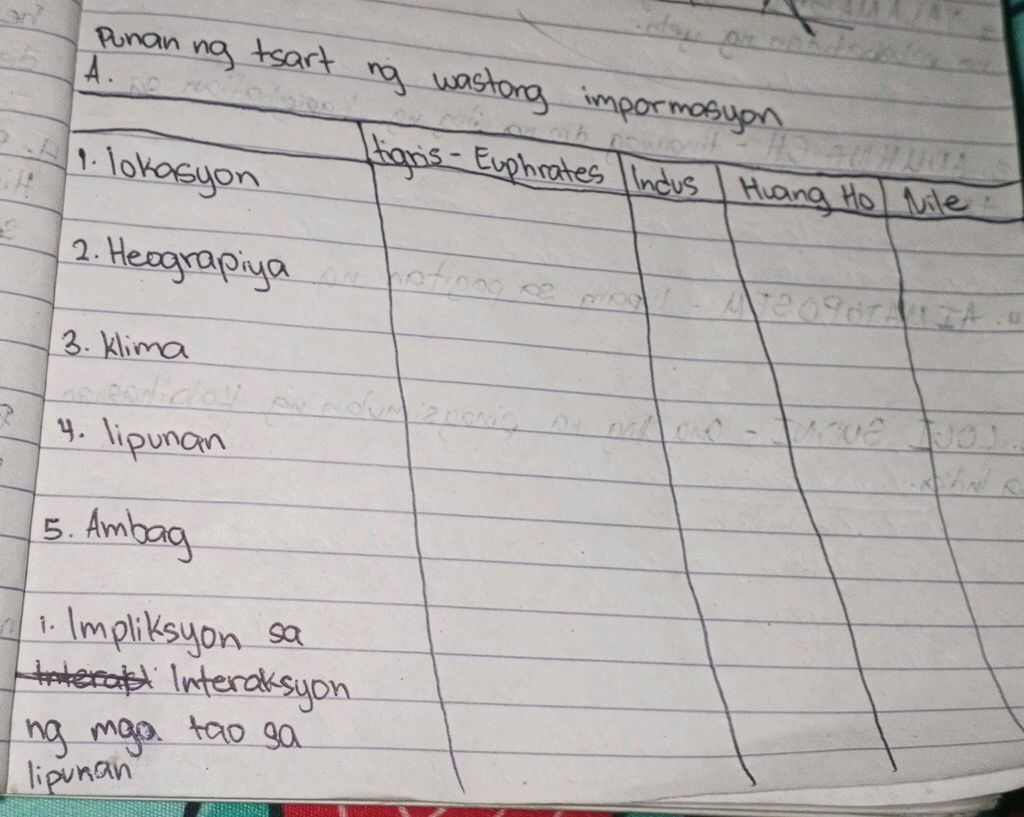 Punan ng tsart ng wastong impormasyon
A.
tigris - Euphrates Indus Huang Ho Nile
1. lokasyon
2. Heograpiya
3. Klima
4. lipunan
5. Ambag
i. Impliksyon sa
Interaksyon
ng mga tao sa
lipunan